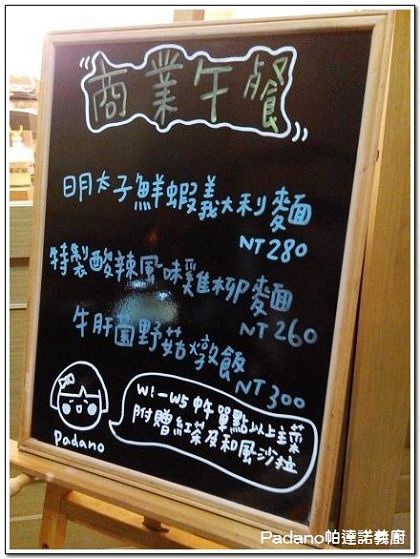 商業午餐
明太子鮮蝦義大利麵
NT 280
特製酸辣風味雞柳麵
NT 260
牛肝菌野菇燉飯
NT 300
W1-W5 中午單點以上主菜
附贈紅茶及和風沙拉
Padano
Padano帕達諾義廚